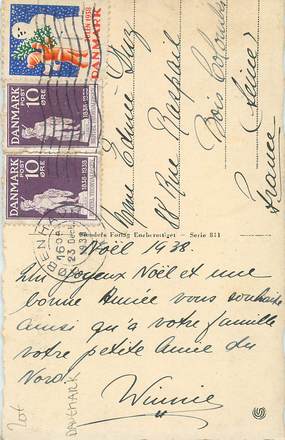 JULEN 1938
DANMARK
DANMARK
POST
10
ØRE
1838-1938
DANMARK
POST
10
ØRE
1838-1938
KØBENHAVN
23 DEC.
Mme Edmée
18 Rue Raspail
Bois Colombes
(Seine)
France
Eneberettiget - Serie 811
Noël 1938.
Un Joyeux Noël et une
bonne Année vous souhaite
ainsi qu'à votre famille
votre petite Amie du
Nord.
Winnie
DANEMARK